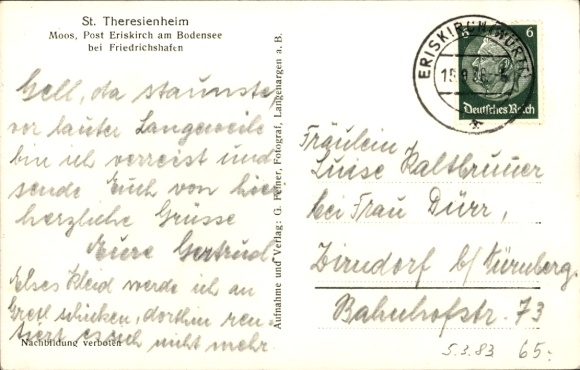 St. Theresienheim
Moos, Post Eriskirch am Bodensee
bei Friedrichshafen
Gell, da staunste
vor lauter Langeweile
bin ich verreist und
sende Euch von hier
herzliche Grüsse
Eure Gertrud
Elses Kleid werde ich an
Gretl schicken, dorthin ren-
tiert es sich nicht mehr.
Nachbildung verboten
Aufnahme und Verlag: G. Feiner, Fotograf, Langenargen a. B.
ERISKIRCH (WÜRTT)
6
Deutsches Reich
Fräulein
Luise Kaltbrunner
bei Frau Dürr,
Zirndorf b/ Nürnberg.
Bahnhofstr. 73
5.3.83 65.-